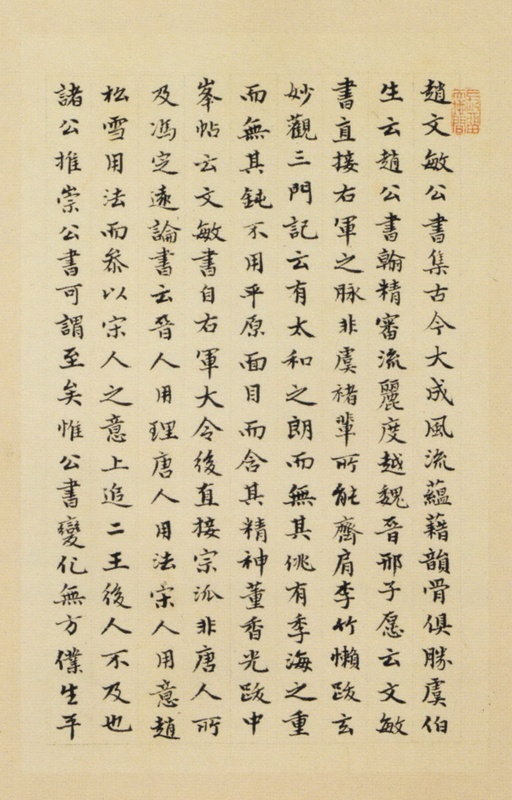 趙文敏公書集古今大成風流蘊藉韻骨俱勝虞伯
生云趙公書翰精審流麗度越魏晉邢子愿云文敏
書直接右軍之脉非虞褚輩所能齊肩李竹懶跋玄
妙觀三門記云有太和之朗而無其佻有季海之重
而無其鈍不用平原面目而含其精神董香光跋中
峯帖云文敏書自右軍大令後直接宗派非唐人所
及馮定遠論書云晉人用理唐人用法宋人用意趙
松雪用法而叅以宋人之意上追二王後人不及也
諸公推崇公書可謂至矣惟公書變化無方僕生平